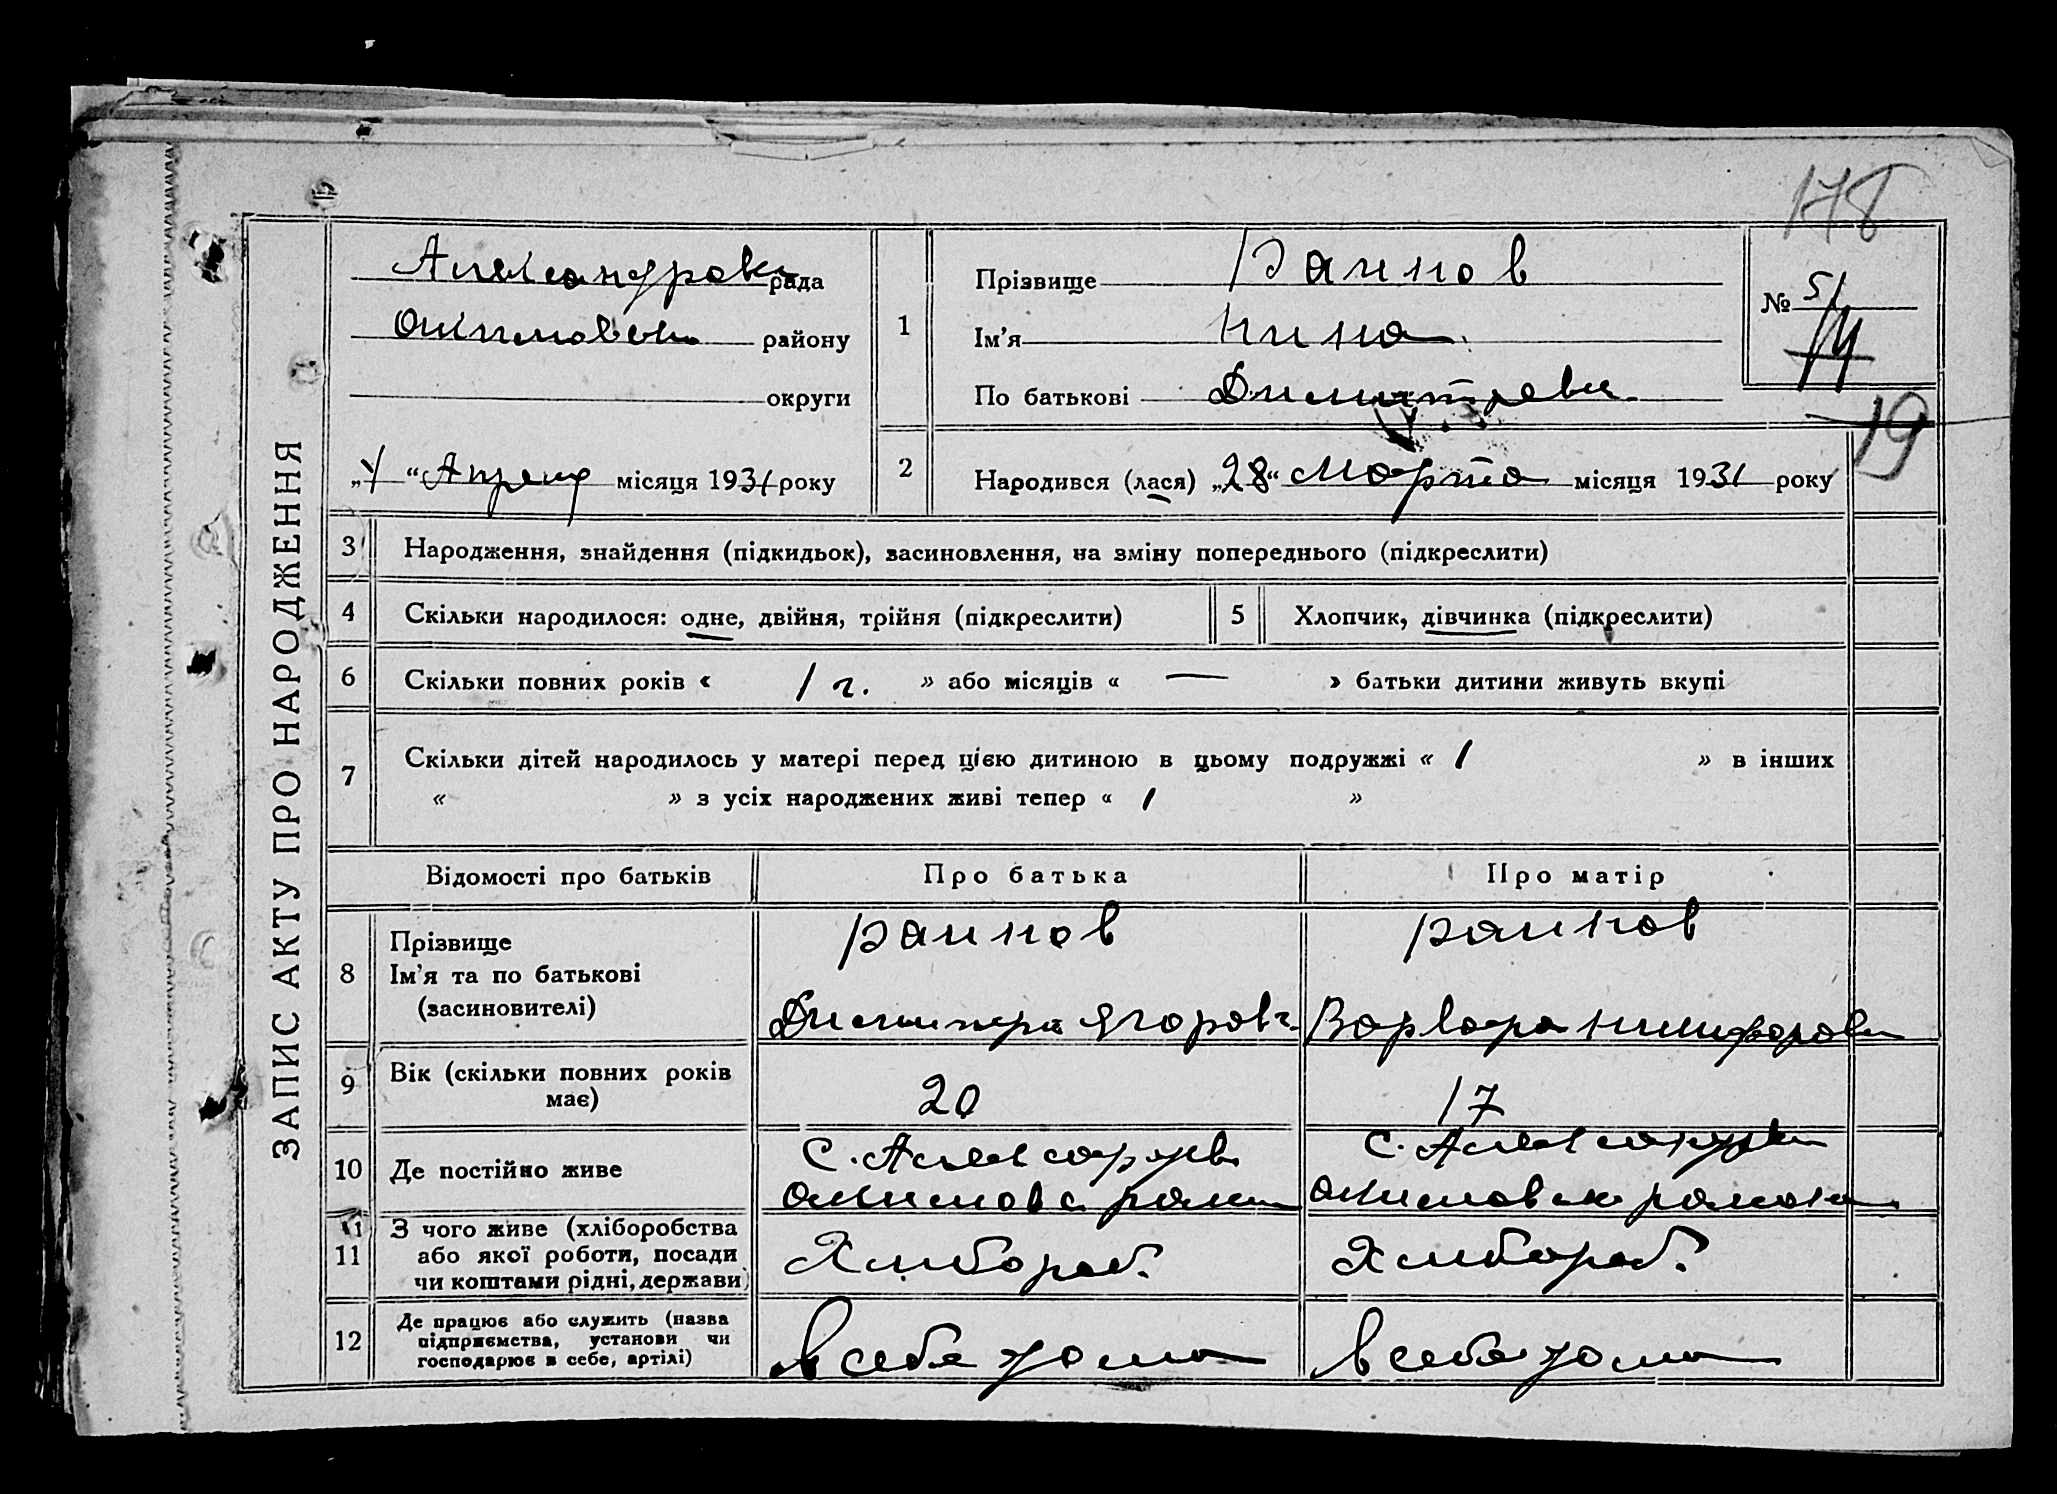 178
ЗАПИС АКТУ ПРО НАРОДЖЕННЯ
Александровк рада
району
округи
„1“ Апреля місяця 1931 року
1
Прізвище Раинов
Ім’я Нина
По батькові Димитревн
№ 5/
19
2
Народився (лася) „28“ Марта місяця 1931 року
3
Народження, знайдення (підкидьок), засиновлення, на зміну попереднього (підкреслити)
4
Скільки народилося: одне, двійня, трійня (підкреслити)
5
Хлопчик, дівчинка (підкреслити)
6
Скільки повних років « 1 г. » або місяців « — » батьки дитини живуть вкупі
7
Скільки дітей народилось у матері перед цією дитиною в цьому подружжі « 1 » в інших
« » з усіх народжених живі тепер « 1 »
Відомості про батьків
Про батька
Про матір
8
Прізвище
Ім’я та по батькові
(засиновителі)
Раинов
Димитри Ягоров.
Раинов
Варвара Никифоровн
9
Вік (скільки повних років
має)
20
17
10
Де постійно живе
с. Александров
Акимовс район
с. Александровк
Акимовск района
11
З чого живе (хліборобства
або якої роботи, посади
чи коштами рідні, держави)
Хлибороб.
Хлибороб.
12
Де працює або служить (назва
підприємства, установи чи
господарює в себе, артілі)
в себе дома
в себе дома